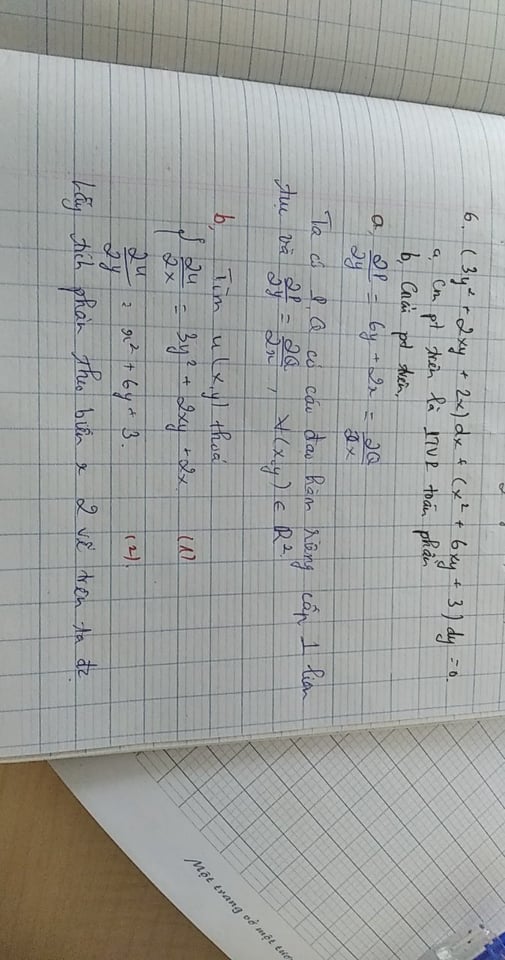 6. (3y² + 2xy + 2x)dx + (x² + 6xy + 3) dy = 0.
a, Cm pt trên là PTVP toàn phần
b, Giải pt trên.
a, ∂P/∂y = 6y + 2x = ∂Q/∂x
Ta có P, Q có các đạo hàm riêng cấp 1 liên
tục và ∂P/∂y = ∂Q/∂x, ∀(x,y) ∈ R².
b, Tìm u(x,y) thoả
{ ∂u/∂x = 3y² + 2xy + 2x (1)
∂u/∂y = x² + 6y + 3. (2).
Lấy tích phân theo biến x 2 vế trên ta đc
Một trang vở một tươ